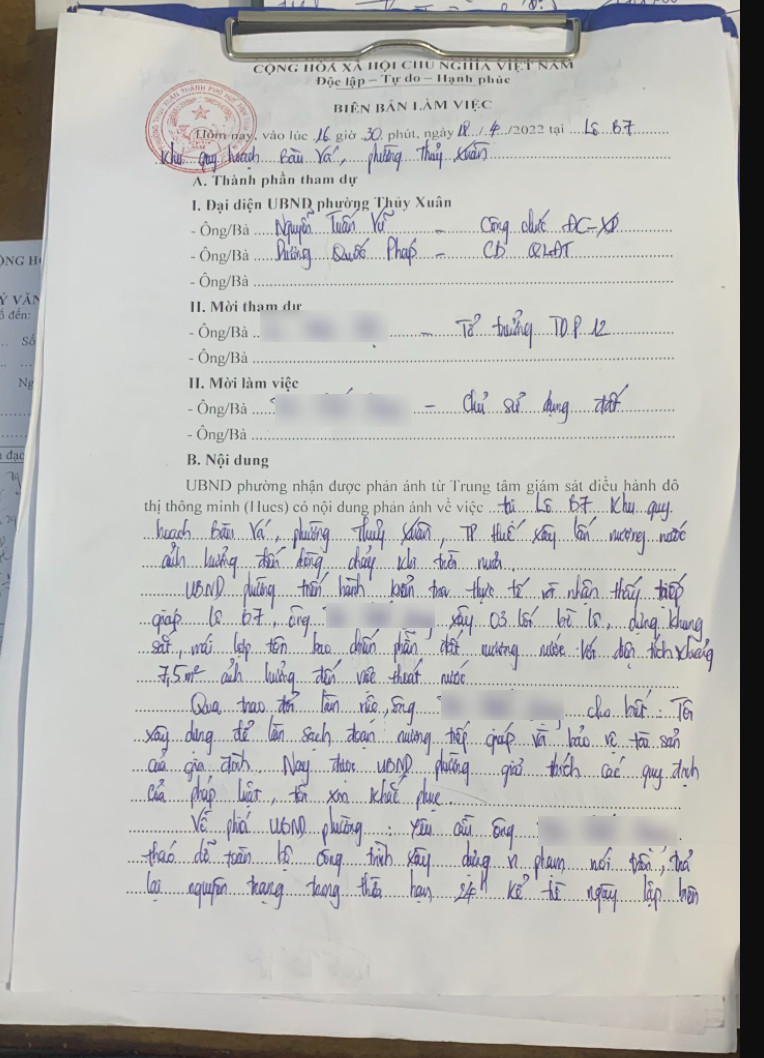 CỘNG HÒA XÃ HỘI CHỦ NGHĨA VIỆT NAM
Độc lập – Tự do – Hạnh phúc
BIÊN BẢN LÀM VIỆC
Hôm nay, vào lúc 16 giờ 30 phút, ngày 18/4/2022 tại Lô B7
Khu quy hoạch Bàu Vá, phường Thủy Xuân
A. Thành phần tham dự
I. Đại diện UBND phường Thủy Xuân
- Ông/Bà Nguyễn Tuấn Vũ - Công chức ĐC-XD
- Ông/Bà Dương Quốc Pháp - CB QLĐT
- Ông/Bà
II. Mời tham dự
- Ông/Bà - Tổ trưởng TDP 12
- Ông/Bà
II. Mời làm việc
- Ông/Bà - Chủ sử dụng đất
- Ông/Bà
B. Nội dung
UBND phường nhận được phản ánh từ Trung tâm giám sát điều hành đô
thị thông minh (Hues) có nội dung phản ánh về việc tại Lô B7 Khu quy
hoạch Bàu Vá, phường Thuỷ Xuân, TP Huế xây lấn mương nước
ảnh hưởng đến dòng chảy khi trời mưa.
UBND phường tiến hành kiểm tra thực tế và nhận thấy tiếp
giáp lô B7, ông xây 03 lối bờ lô, dựng khung
sắt, mái lợp tôn bao chiếm phần đất mương nước với diện tích khoảng
7,5m² ảnh hưởng đến việc thoát nước
Qua trao đổi làm việc, ông cho biết: Tôi
xây dựng để làm sạch đoạn mương tiếp giáp và bảo vệ tài sản
của gia đình. Nay được UBND phường giải thích các quy định
của pháp luật, tôi xin khắc phục.
Về phía UBND phường: Yêu cầu ông
tháo dỡ toàn bộ công trình xây dựng vi phạm nói trên, trả
lại nguyên trạng trong thời hạn 24h kể từ ngày lập biên